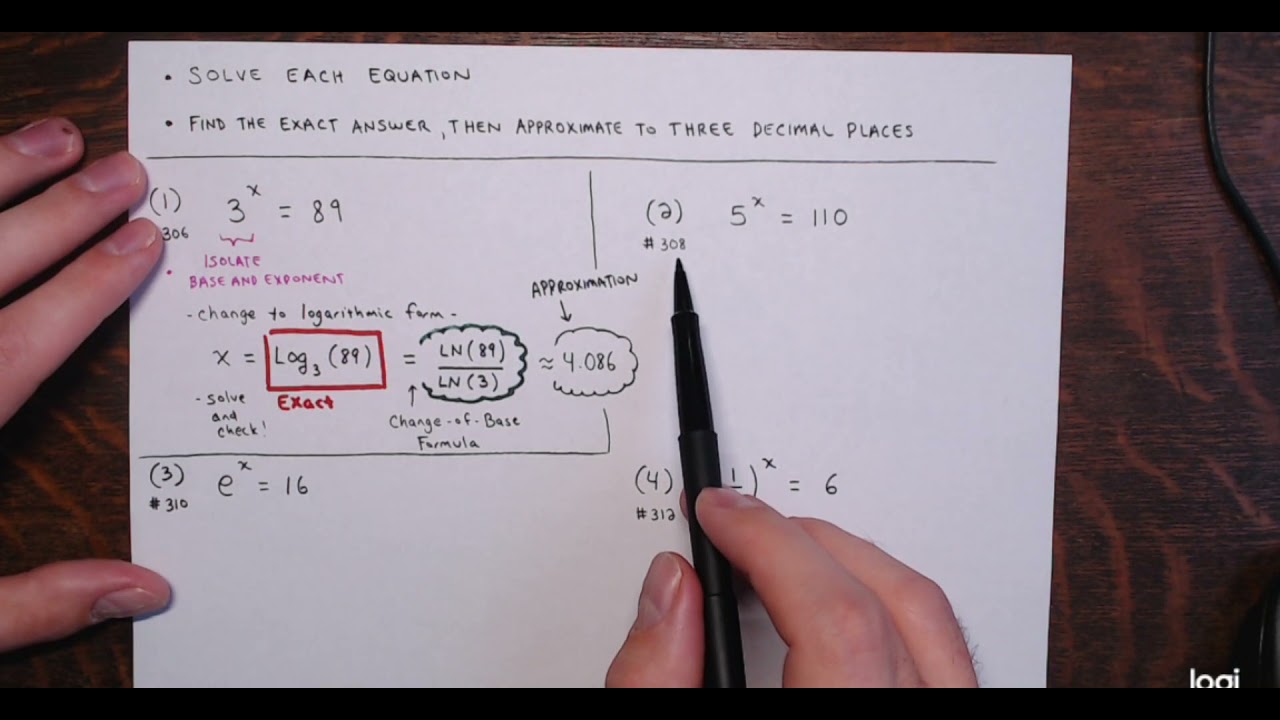 • SOLVE EACH EQUATION
• FIND THE EXACT ANSWER, THEN APPROXIMATE TO THREE DECIMAL PLACES
(1) 3^x = 89
306
ISOLATE
• BASE AND EXPONENT
- change to logarithmic form -
x = Log₃(89) = LN(89)/LN(3) ≈ 4.086
APPROXIMATION
Exact
- solve
and
check!
Change-of-Base
Formula
(2) 5^x = 110
# 308
(3) e^x = 16
# 310
(4) 1 )^x = 6
# 312
logi